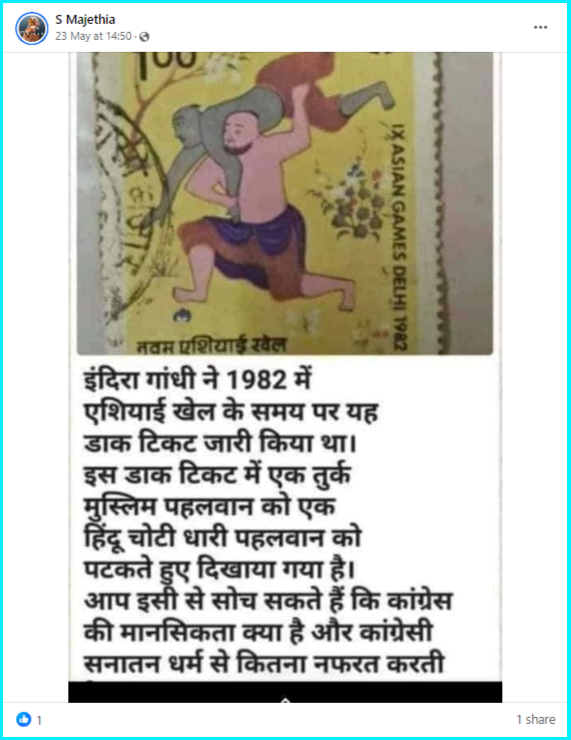 S Majethia
23 May at 14:50
100
IX ASIAN GAMES DELHI 1982
नवम एशियाई खेल
इंदिरा गांधी ने 1982 में
एशियाई खेल के समय पर यह
डाक टिकट जारी किया था।
इस डाक टिकट में एक तुर्क
मुस्लिम पहलवान को एक
हिंदू चोटी धारी पहलवान को
पटकते हुए दिखाया गया है।
आप इसी से सोच सकते हैं कि कांग्रेस
की मानसिकता क्या है और कांग्रेसी
सनातन धर्म से कितना नफरत करती
1
1 share